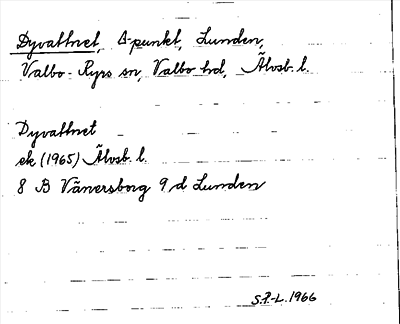 Dyvattnet, Δ-punkt, Lunden,
Valbo-Ryrs sn, Valbo hd, Älvsb. l.
Dyvattnet
ek (1965) Älvsb. l.
8 B Vänersborg 9 d Lunden
S.F.-L. 1966